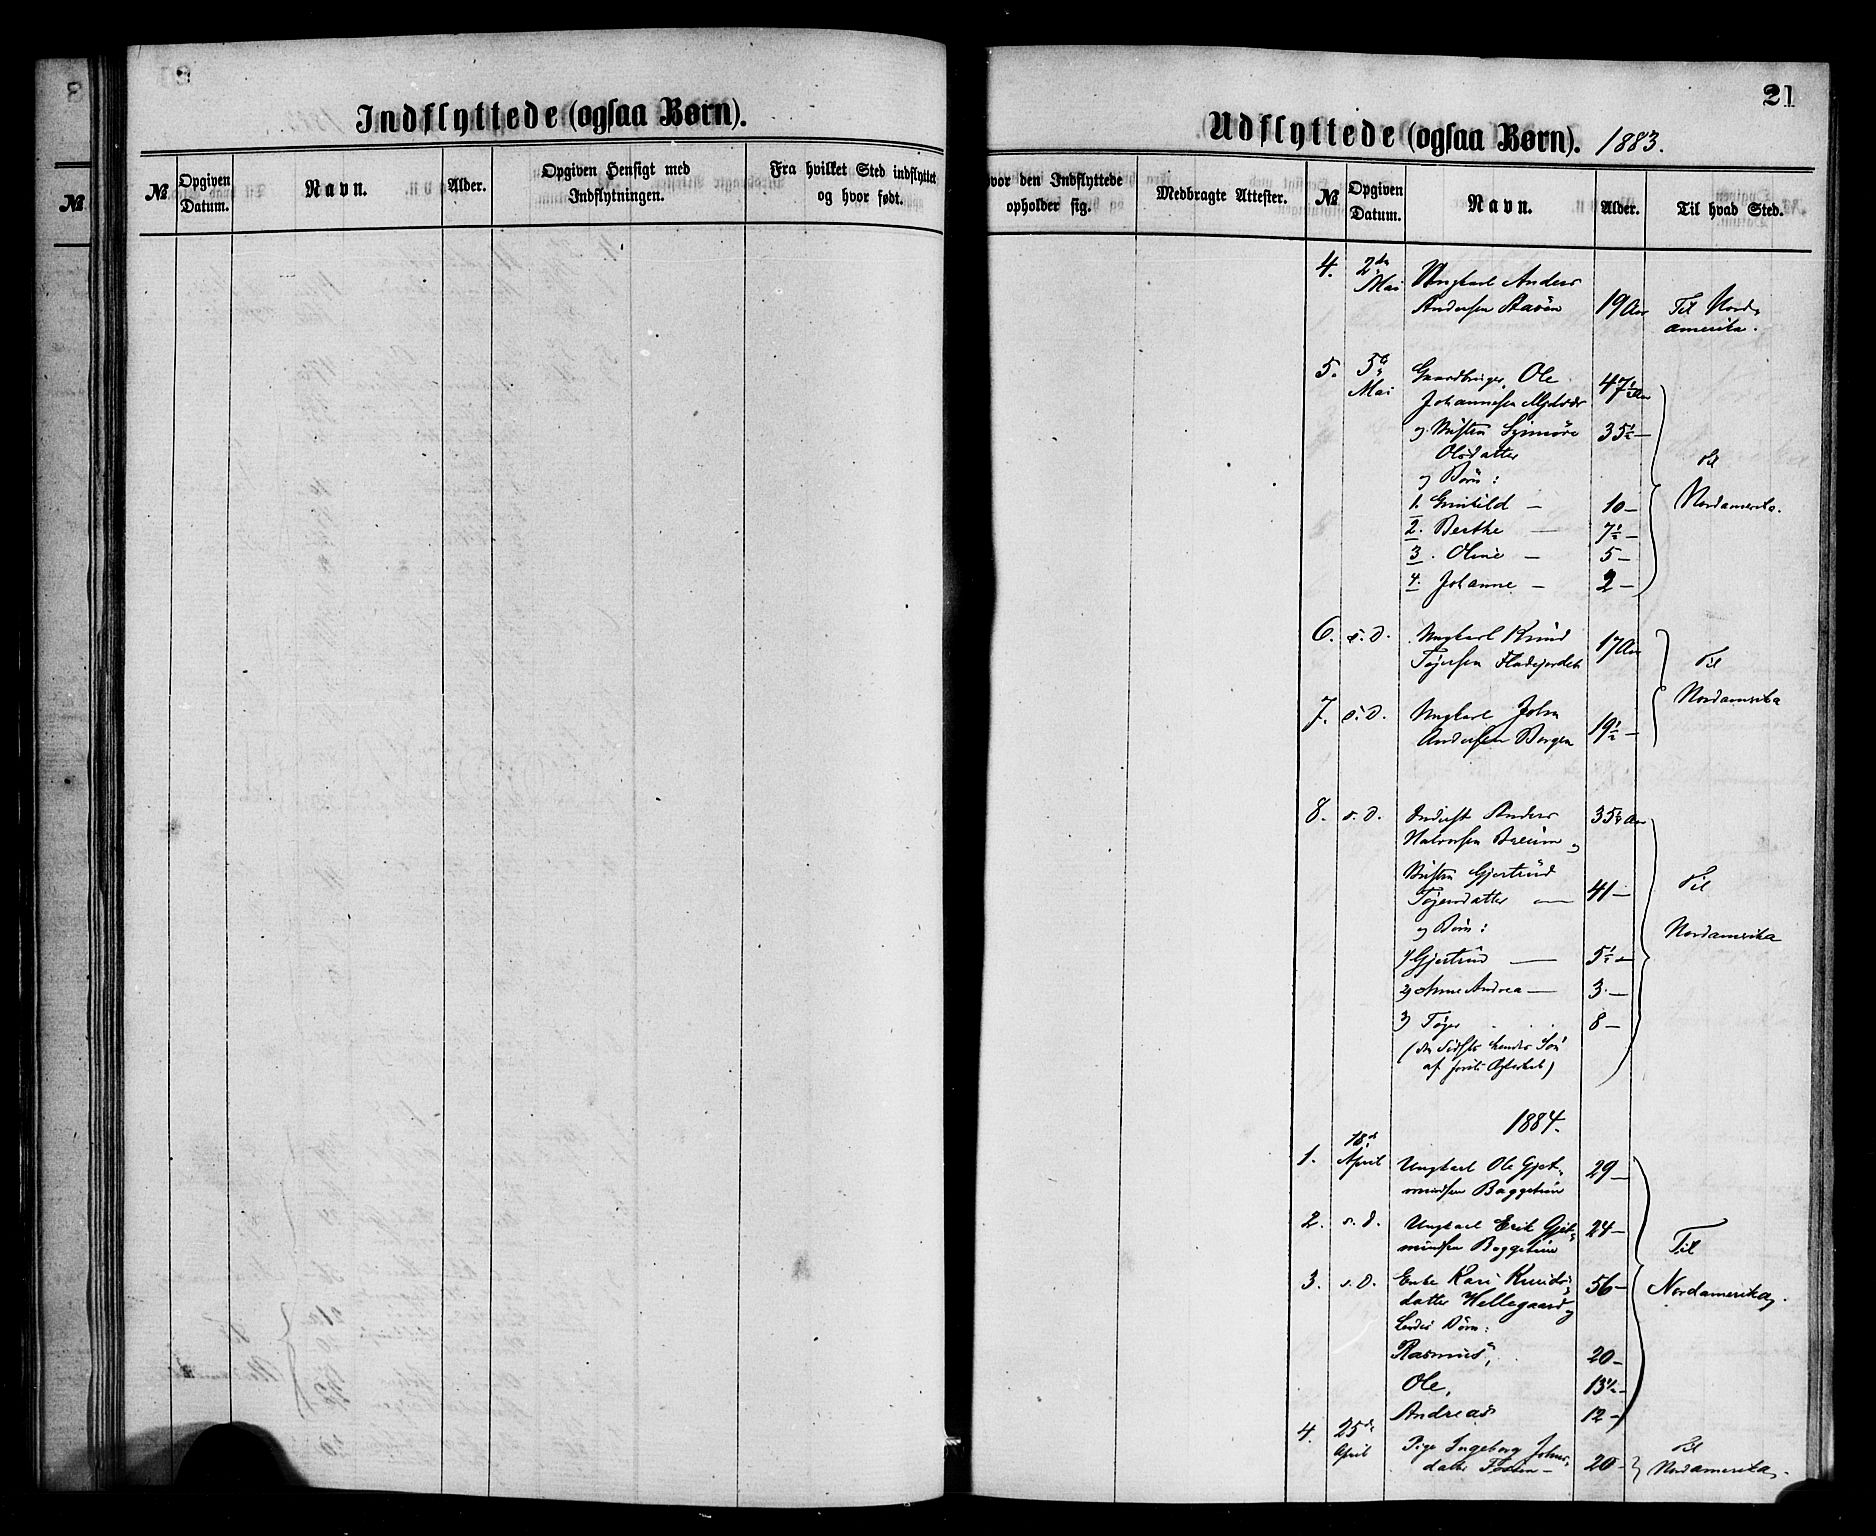 Indflyttede (ogsaa Børn).
№
Opgiven Datum.
Navn.
Alder.
Opgiven Hensigt med Indflytningen.
Fra hvilket Sted indflyttet og hvor født.
№
21
Udflyttede (ogsaa Børn). 1883.
vor den Indflyttede opholder sig.
Medbragte Attester.
№
Opgiven Datum.
Navn.
Alder.
Til hvad Sted.
4. 2den Ungkarl Anders
Mai Andersen 19 Aar Til Nord-
amerika.
5. 5te Gaardbruger Ole 47½ Aar
Mai Johannesen
og Hustru Synnøve 35½ —
Olsdatter
og Børn: Til
1. Gunhild — 10 — Nordamerika.
2. Berthe — 7½ —
3. Oline — 5 —
4. Johanne — 2 —
6. s. D. Ungkarl Knud 17 Aar
Tøgersen Fladejordet Til
Nordamerika
7. s. D. Ungkarl John 19½ —
Andersen Borgen
8. s. D. Inderst Anders 35½ Aar
Halvorsen Breum og
Hustru Gjertrud Til
Tøgersdatter — 41 —
og Børn: Nordamerika
1) Gjertrud — 5½ —
2) Anne Andrea — 3 —
3) Tøger 8 —
(den sidste hendes Søn
af Ægteskab)
1884.
18de
1. April Ungkarl Ole Gjet- 29 —
mundsen Baggetun
2. s. D. Ungkarl Erik Gjet- 24 —
mundsen Baggetun Til
3. s. D. Enke Kari Knuds- 56 — Nordamerika.
datter Hellegaard og
hendes Børn:
Rasmus, 20 —
Ole, 13½ —
Andreas 12 —
4. 25de Pige Ingeborg Johns- Til
April datter 20 — Nordamerika.